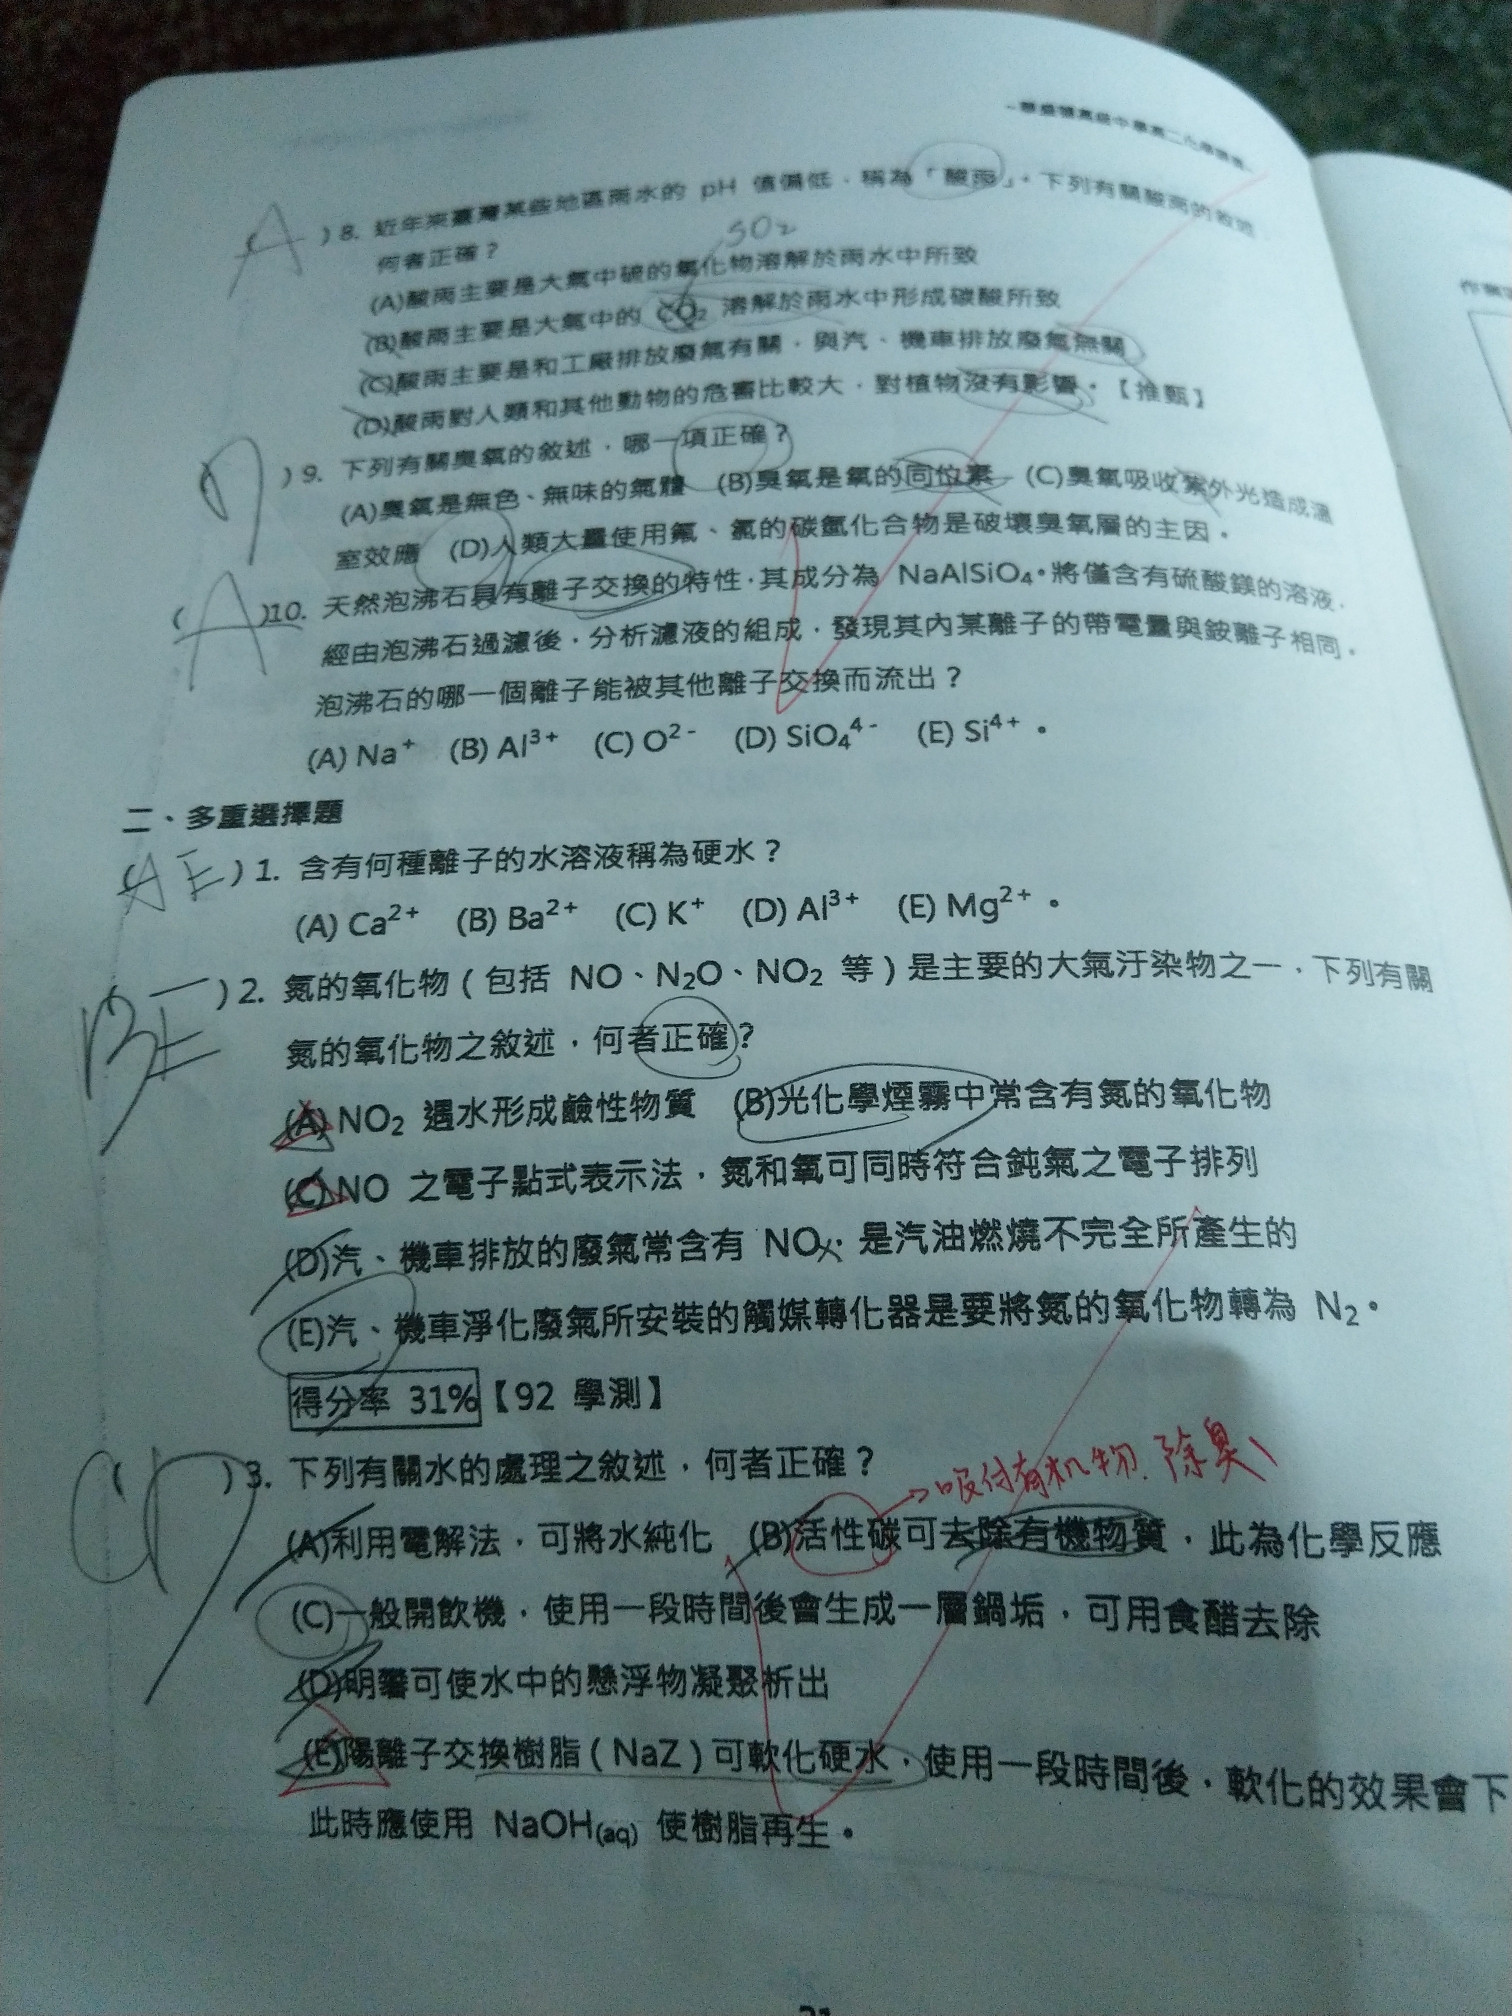 ~華盛頓高級中學高二化學講義~
(A)8. 近年來臺灣某些地區雨水的 pH 值偏低，稱為「酸雨」。下列有關酸雨的敘述
何者正確？
SO₂
(A)酸雨主要是大氣中硫的氧化物溶解於雨水中所致
(B)酸雨主要是大氣中的 CO₂ 溶解於雨水中形成碳酸所致
(C)酸雨主要是和工廠排放廢氣有關，與汽、機車排放廢氣無關
(D)酸雨對人類和其他動物的危害比較大，對植物沒有影響。【推甄】
(D)9. 下列有關臭氧的敘述，哪一項正確？
(A)臭氧是無色、無味的氣體 (B)臭氧是氧的同位素 (C)臭氧吸收紫外光造成溫
室效應 (D)人類大量使用氟、氯的碳氫化合物是破壞臭氧層的主因。
(A)10. 天然泡沸石具有離子交換的特性，其成分為 NaAlSiO₄。將僅含有硫酸鎂的溶液，
經由泡沸石過濾後，分析濾液的組成，發現其內某離子的帶電量與銨離子相同。
泡沸石的哪一個離子能被其他離子交換而流出？
(A) Na⁺ (B) Al³⁺ (C) O²⁻ (D) SiO₄⁴⁻ (E) Si⁴⁺。
二、多重選擇題
(AE)1. 含有何種離子的水溶液稱為硬水？
(A) Ca²⁺ (B) Ba²⁺ (C) K⁺ (D) Al³⁺ (E) Mg²⁺。
(BE)2. 氮的氧化物（包括 NO、N₂O、NO₂ 等）是主要的大氣汙染物之一，下列有關
氮的氧化物之敘述，何者正確？
(A) NO₂ 遇水形成鹼性物質 (B)光化學煙霧中常含有氮的氧化物
(C) NO 之電子點式表示法，氮和氧可同時符合鈍氣之電子排列
(D)汽、機車排放的廢氣常含有 NOₓ，是汽油燃燒不完全所產生的
(E)汽、機車淨化廢氣所安裝的觸媒轉化器是要將氮的氧化物轉為 N₂。
得分率 31%【92 學測】
(CD)3. 下列有關水的處理之敘述，何者正確？
→吸付有机物、除臭
(A)利用電解法，可將水純化 (B)活性碳可去除有機物質，此為化學反應
(C)一般開飲機，使用一段時間後會生成一層鍋垢，可用食醋去除
(D)明礬可使水中的懸浮物凝聚析出
(E)陽離子交換樹脂（NaZ）可軟化硬水，使用一段時間後，軟化的效果會下
此時應使用 NaOH(aq) 使樹脂再生。